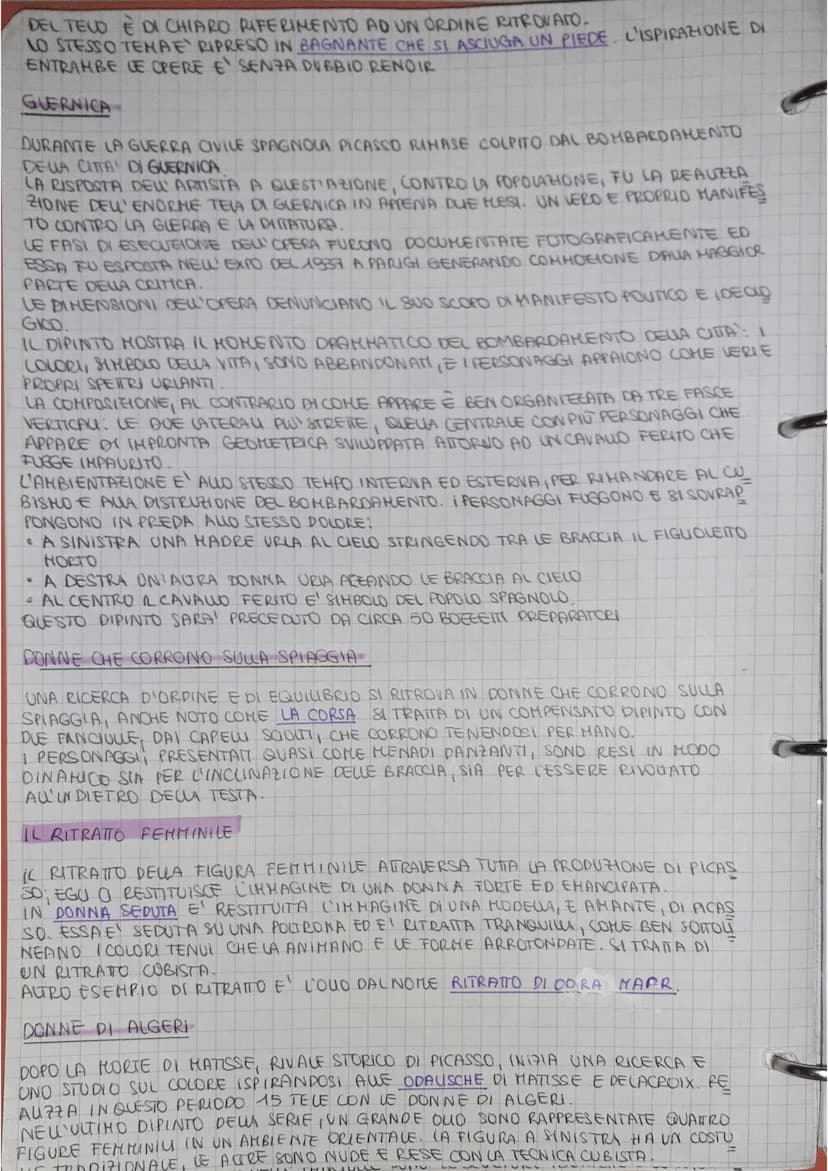 DEL TELO È DI CHIARO RIFERIMENTO AD UN ORDINE RITROVATO.
LO STESSO TEMA E' RIPRESO IN BAGNANTE CHE SI ASCIUGA UN PIEDE. L'ISPIRAZIONE DI
ENTRAMBE LE OPERE E' SENZA DUBBIO RENOIR
GUERNICA
DURANTE LA GUERRA CIVILE SPAGNOLA PICASSO RIMASE COLPITO DAL BOMBARDAMENTO
DELLA CITTA' DI GUERNICA.
LA RISPOSTA DELL'ARTISTA A QUEST'AZIONE, CONTRO LA POPOLAZIONE, FU LA REALIZZA
ZIONE DELL'ENORME TELA DI GUERNICA IN APPENA DUE MESI. UN VERO E PROPRIO MANIFES
TO CONTRO LA GUERRA E LA DITTATURA.
LE FASI DI ESECUZIONE DELL'OPERA FURONO DOCUMENTATE FOTOGRAFICAMENTE ED
ESSA FU ESPOSTA NELL'EXPO DEL 1937 A PARIGI GENERANDO COMMOZIONE DALLA MAGGIOR
PARTE DELLA CRITICA.
LE DIMENSIONI DELL'OPERA DENUNCIANO IL SUO SCOPO DI MANIFESTO POLITICO E IDEOLO
GICO.
IL DIPINTO MOSTRA IL MOMENTO DRAMMATICO DEL BOMBARDAMENTO DELLA CITTA': I
COLORI, SIMBOLO DELLA VITA, SONO ABBANDONATI, E I PERSONAGGI APPAIONO COME VERI E
PROPRI SPETTRI URLANTI.
LA COMPOSIZIONE, AL CONTRARIO DI COME APPARE È BEN ORGANIZZATA DA TRE FASCE
VERTICALI: LE DUE LATERALI PIU' STRETTE, QUELLA CENTRALE CON PIÙ PERSONAGGI CHE
APPARE DI IMPRONTA GEOMETRICA SVILUPPATA ATTORNO AD UN CAVALLO FERITO CHE
FUGGE IMPAURITO.
L'AMBIENTAZIONE E' ALLO STESSO TEMPO INTERNA ED ESTERNA, PER RIMANDARE AL CU
BISMO E ALLA DISTRUZIONE DEL BOMBARDAMENTO. I PERSONAGGI FUGGONO E SI SOVRAP
PONGONO IN PREDA ALLO STESSO DOLORE:
• A SINISTRA UNA MADRE URLA AL CIELO STRINGENDO TRA LE BRACCIA IL FIGLIOLETTO
MORTO
• A DESTRA UN'ALTRA DONNA URLA ALZANDO LE BRACCIA AL CIELO
• AL CENTRO IL CAVALLO FERITO E' SIMBOLO DEL POPOLO SPAGNOLO.
QUESTO DIPINTO SARA' PRECEDUTO DA CIRCA 50 BOZZETTI PREPARATORI
DONNE CHE CORRONO SULLA SPIAGGIA
UNA RICERCA D'ORDINE E DI EQUILIBRIO SI RITROVA IN DONNE CHE CORRONO SULLA
SPIAGGIA, ANCHE NOTO COME LA CORSA. SI TRATTA DI UN COMPENSATO DIPINTO CON
DUE FANCIULLE, DAI CAPELLI SCIOLTI, CHE CORRONO TENENDOSI PER MANO.
I PERSONAGGI, PRESENTATI QUASI COME MENADI DANZANTI, SONO RESI IN MODO
DINAMICO SIA PER L'INCLINAZIONE DELLE BRACCIA, SIA PER L'ESSERE RIVOLTATO
ALL'INDIETRO DELLA TESTA.
IL RITRATTO FEMMINILE
IL RITRATTO DELLA FIGURA FEMMINILE ATTRAVERSA TUTTA LA PRODUZIONE DI PICAS
SO; EGLI CI RESTITUISCE L'IMMAGINE DI UNA DONNA FORTE ED EMANCIPATA.
IN DONNA SEDUTA E' RESTITUITA L'IMMAGINE DI UNA MODELLA, E AMANTE, DI PICAS
SO. ESSA E' SEDUTA SU UNA POLTRONA ED E' RITRATTA TRANQUILLA, COME BEN SOTTOLI
NEANO I COLORI TENUI CHE LA ANIMANO E LE FORME ARROTONDATE. SI TRATTA DI
UN RITRATTO CUBISTA.
ALTRO ESEMPIO DI RITRATTO E' L'OLIO DAL NOME RITRATTO DI DORA MAAR.
DONNE DI ALGERI
DOPO LA MORTE DI MATISSE, RIVALE STORICO DI PICASSO, INIZIA UNA RICERCA E
UNO STUDIO SUL COLORE ISPIRANDOSI ALLE ODALISCHE DI MATISSE E DELACROIX. RE
ALIZZA IN QUESTO PERIODO 15 TELE CON LE DONNE DI ALGERI.
NELL'ULTIMO DIPINTO DELLA SERIE, UN GRANDE OLIO SONO RAPPRESENTATE QUATTRO
FIGURE FEMMINILI IN UN AMBIENTE ORIENTALE. LA FIGURA A SINISTRA HA UN COSTU
ME TRADIZIONALE, LE ALTRE SONO NUDE E RESE CON LA TECNICA CUBISTA.